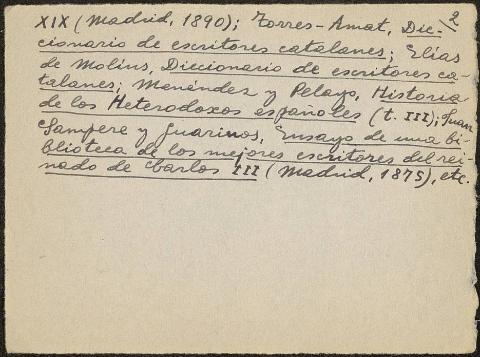 2
XIX (Madrid, 1890); Torres-Amat, Dic-
cionario de escritores catalanes; Elías
de Molins, Diccionario de escritores ca-
talanes; Menéndez y Pelayo, Historia
de los Heterodoxos españoles (t. III); Juan
Sampere y Guarinos, Ensayo de una bi-
blioteca de los mejores escritores del rei-
nado de Carlos III (Madrid, 1875), etc.